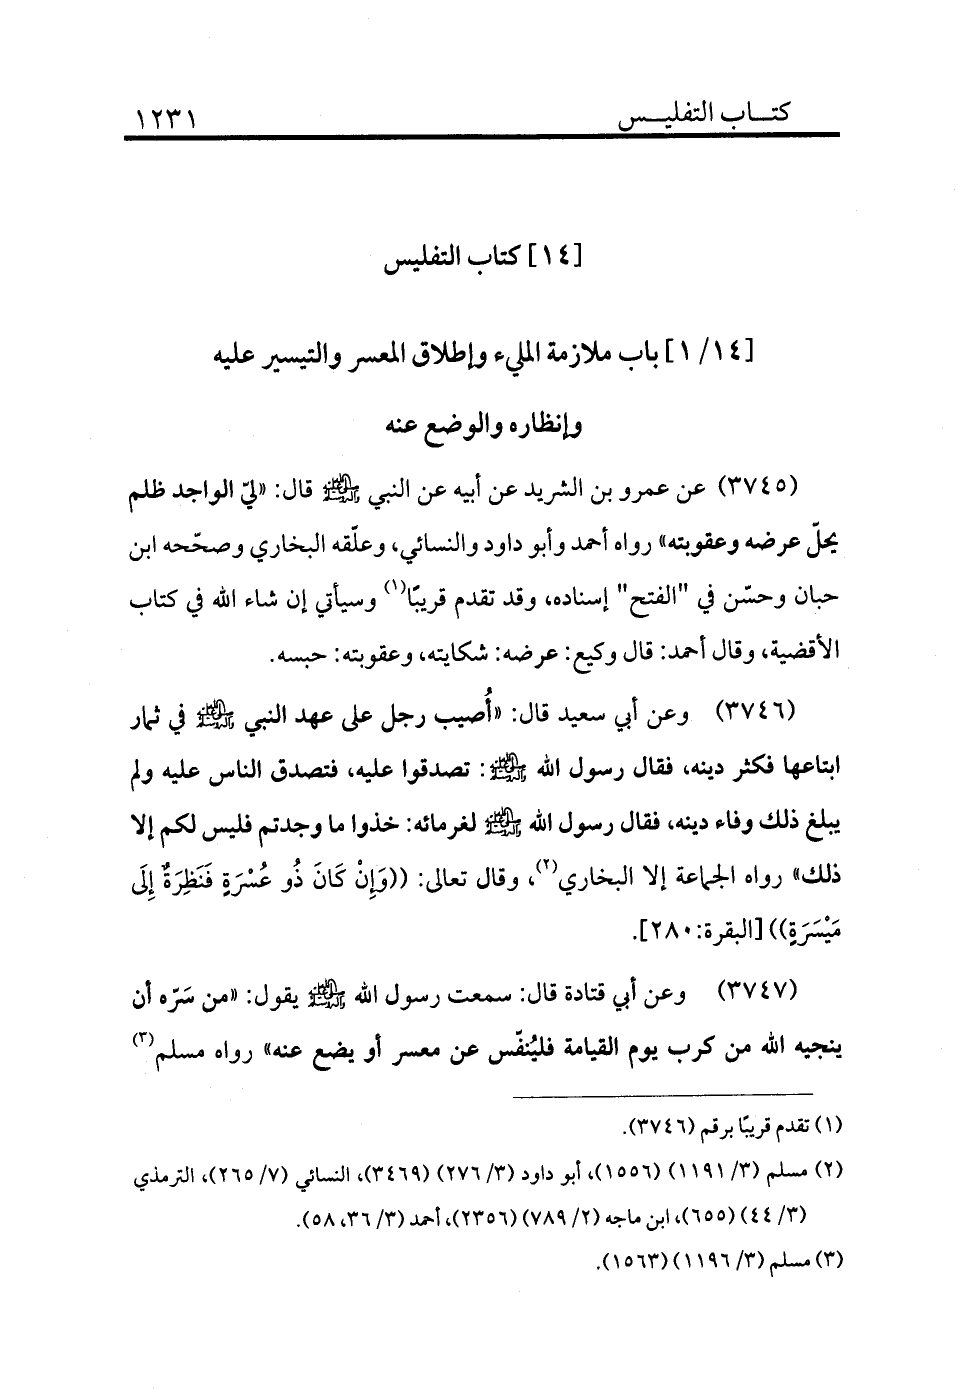 كتـــاب التفليـــس ١٢٣١
[١٤] كتاب التفليس
[١/١٤] باب ملازمة المليء وإطلاق المعسر والتيسير عليه
وإنظاره والوضع عنه
(٣٧٤٥) عن عمرو بن الشريد عن أبيه عن النبي ﷺ قال: «ليّ الواجد ظلم
يحلّ عرضه وعقوبته» رواه أحمد وأبو داود والنسائي، وعلّقه البخاري وصحّحه ابن
حبان وحسّن في "الفتح" إسناده، وقد تقدم قريبًا(١) وسيأتي إن شاء الله في كتاب
الأقضية، وقال أحمد: قال وكيع: عرضه: شكايته، وعقوبته: حبسه.
(٣٧٤٦) وعن أبي سعيد قال: «أُصيب رجل على عهد النبي ﷺ في ثمار
ابتاعها فكثر دينه، فقال رسول الله ﷺ: تصدقوا عليه، فتصدق الناس عليه ولم
يبلغ ذلك وفاء دينه، فقال رسول الله ﷺ لغرمائه: خذوا ما وجدتم فليس لكم إلا
ذلك» رواه الجماعة إلا البخاري(٢)، وقال تعالى: ((وَإِنْ كَانَ ذُو عُسْرَةٍ فَنَظِرَةٌ إِلَى
مَيْسَرَةٍ)) [البقرة:٢٨٠].
(٣٧٤٧) وعن أبي قتادة قال: سمعت رسول الله ﷺ يقول: «من سَرّه أن
ينجيه الله من كرب يوم القيامة فليُنفّس عن معسر أو يضع عنه» رواه مسلم(٣)
(١) تقدم قريبًا برقم (٣٧٤٦).
(٢) مسلم (٣/ ١١٩١) (١٥٥٦)، أبو داود (٣/ ٢٧٦) (٣٤٦٩)، النسائي (٧/ ٢٦٥)، الترمذي
(٣/ ٤٤) (٦٥٥)، ابن ماجه (٢/ ٧٨٩) (٢٣٥٦)، أحمد (٣/ ٣٦، ٥٨).
(٣) مسلم (٣/ ١١٩٦) (١٥٦٣).